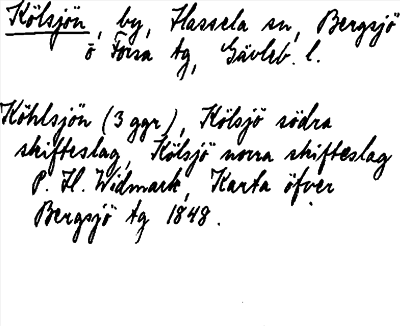 Kölsjön, by, Hassela sn, Bergsjö
o Forsa tg, Gävleb. l.
Köhlsjön (3 ggr), Kölsjö södra
skifteslag, Kölsjö norra skifteslag
P. H. Widmark, Karta öfver
Bergsjö tg 1848.